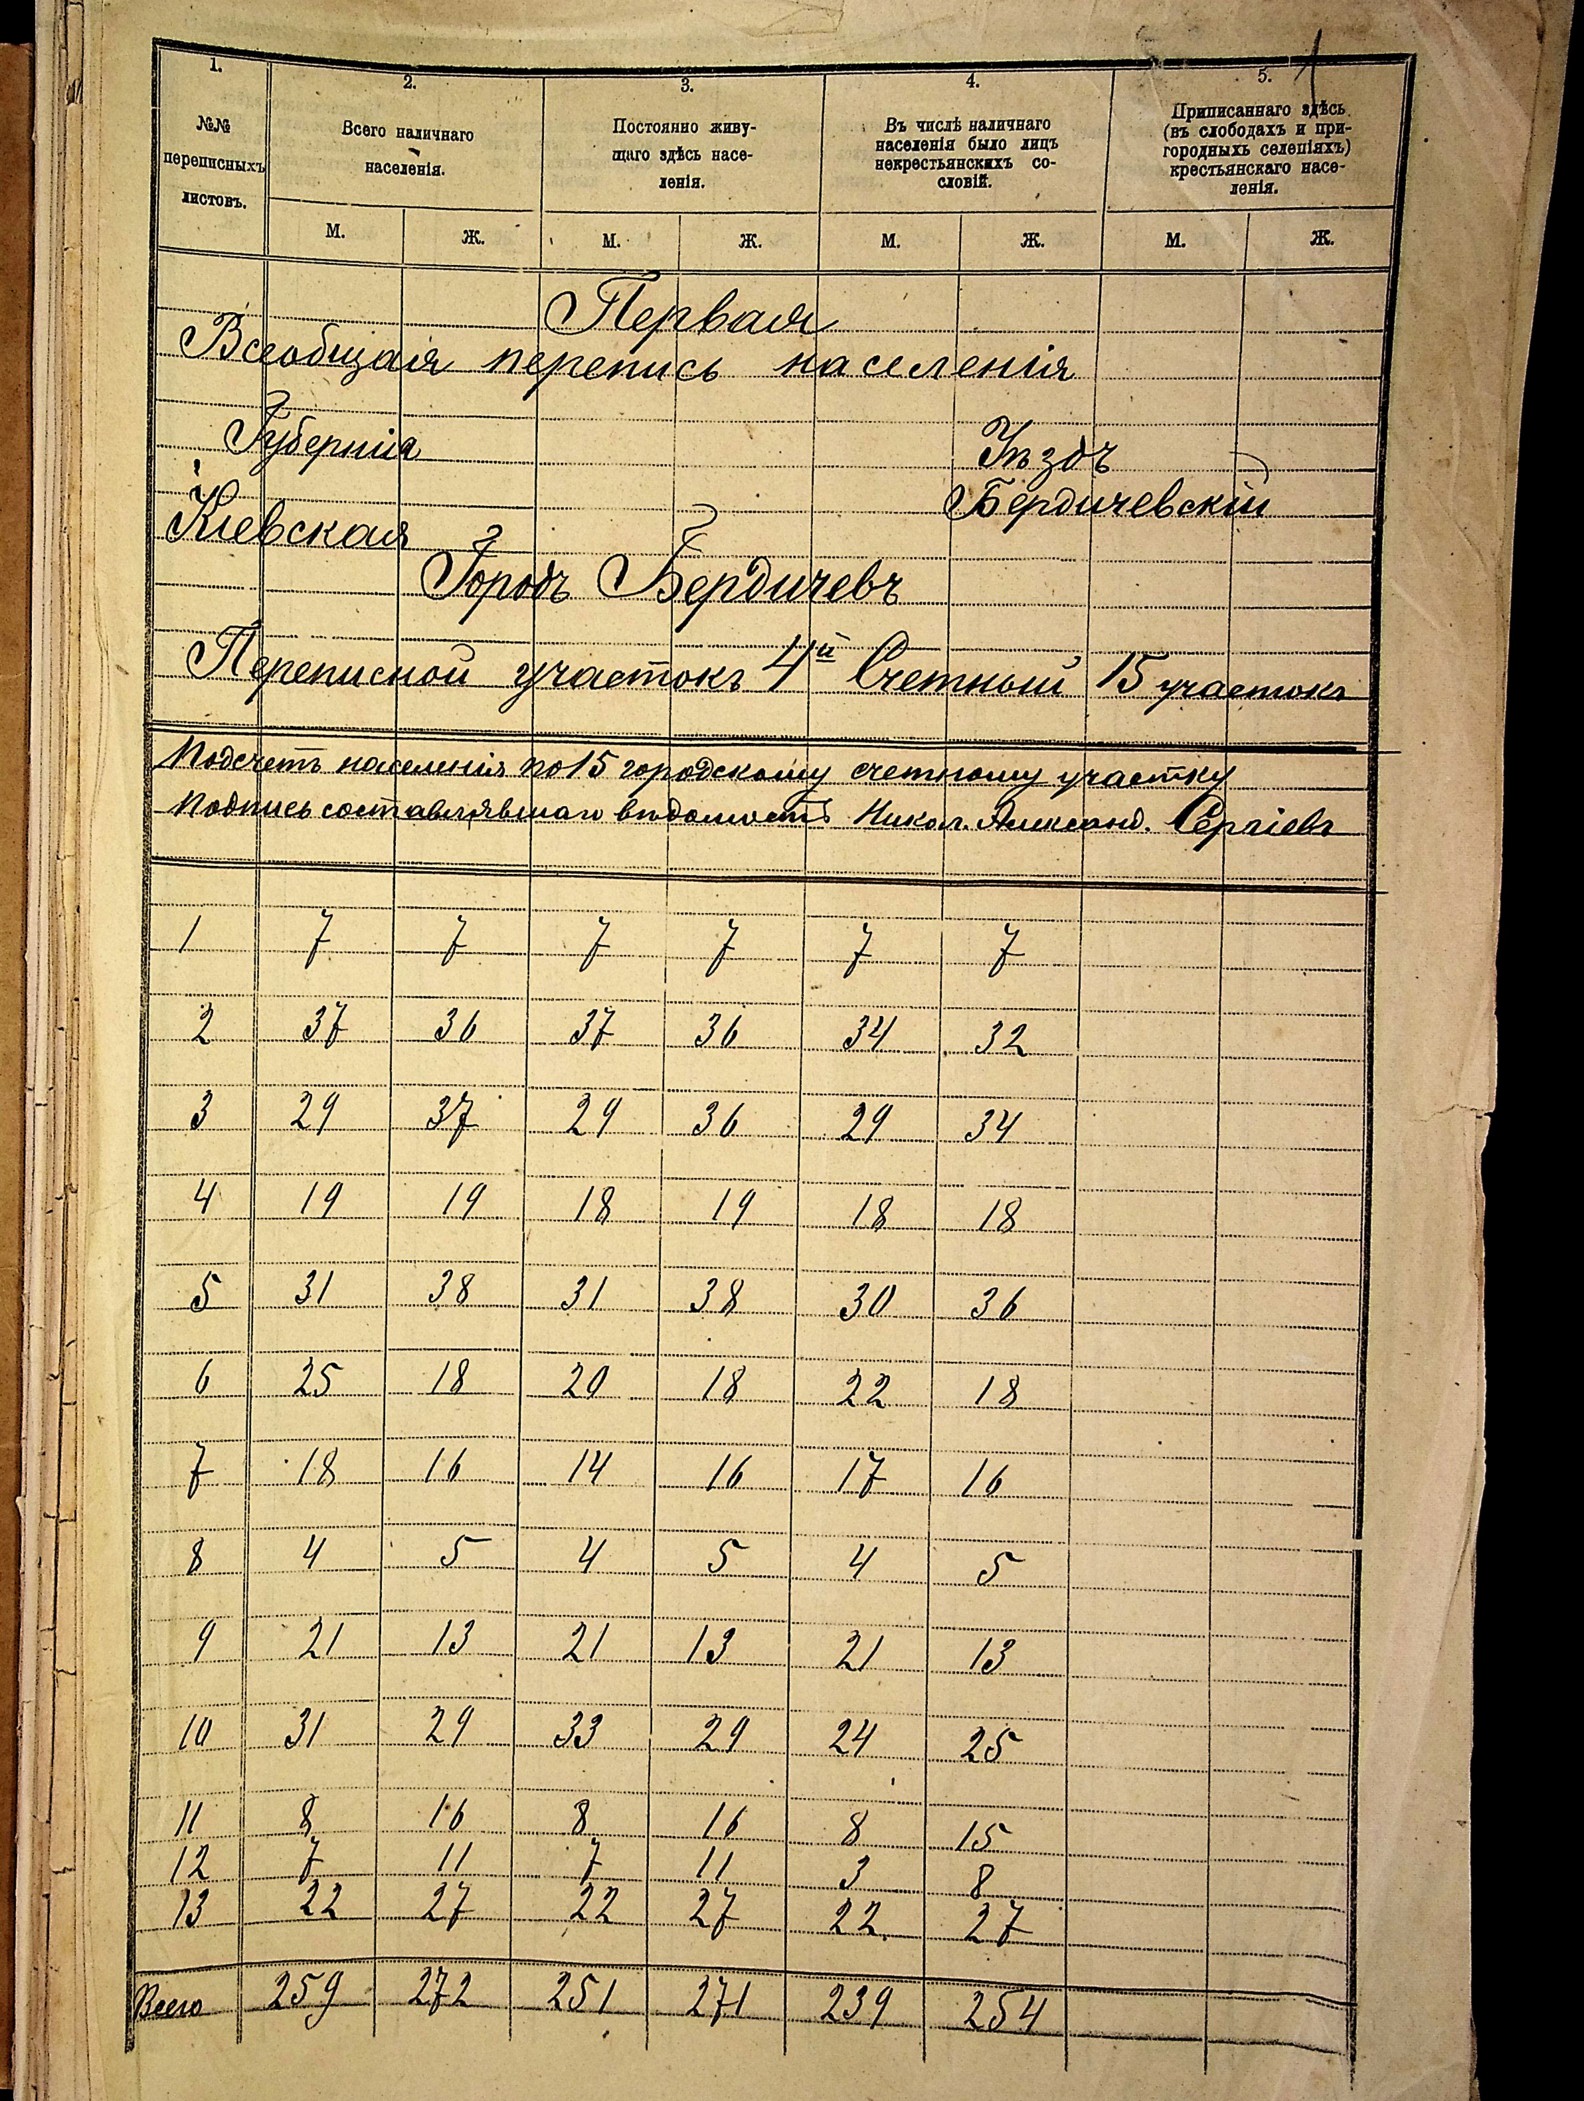 1. 2. 3. 4. 5.
№№ переписныхъ листовъ.
Всего наличнаго населенія.
Постоянно живу-
щаго здѣсь насе-
ленія.
Въ числѣ наличнаго
населенія было лицъ
некрестьянскихъ со-
словій.
Приписаннаго здѣсь
(въ слободахъ и при-
городныхъ селеніяхъ)
крестьянскаго насе-
ленія.
М. Ж. М. Ж. М. Ж. М. Ж.
Первая
Всеобщая перепись населенія
Губернія Уѣздъ
Кіевская Бердичевскій
Городъ Бердичевъ
Переписной участокъ 4й Счетный 15 участокъ
Подсчетъ населенія по 15 городскому счетному участку
Подпись составлявшаго вѣдомость Никол. Александ. Сергіевъ
1 7 7 7 7 7 7
2 37 36 37 36 34 32
3 29 37 29 36 29 34
4 19 19 18 19 18 18
5 31 38 31 38 30 36
6 25 18 20 18 22 18
7 18 16 14 16 17 16
8 4 5 4 5 4 5
9 21 13 21 13 21 13
10 31 29 33 29 24 25
11 8 16 8 16 8 15
12 7 11 7 11 3 8
13 22 27 22 27 22 27
Всего 259 272 251 271 239 254